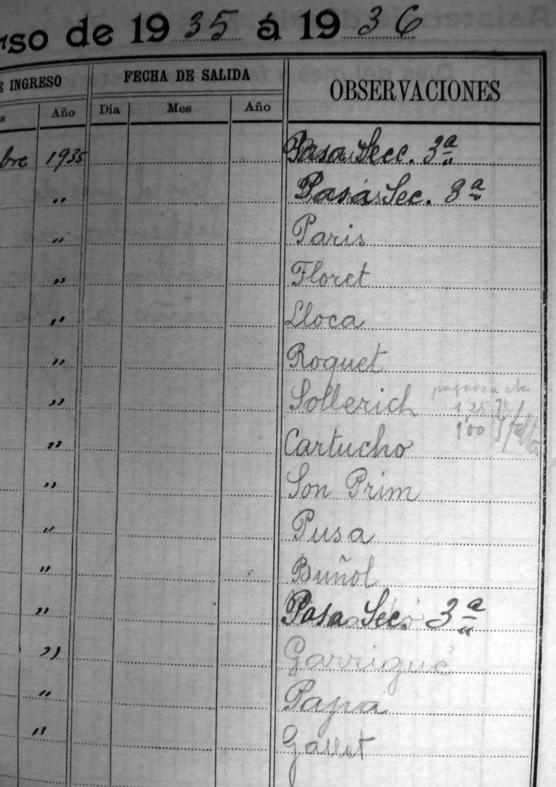 so de 1935 á 1936
E INGRESO FECHA DE SALIDA OBSERVACIONES
s Año Dia Mes Año
bre 1935 Pasa Secc. 3ª
" Pasa Sec. 3ª
" Paris
" Floret
" Lloca
" Roquet
" Sollerich
1'25
" Cartucho 1'00
" Son Prim
" Pusa
" Buñol
" Pasa Sec. 3ª
" Garrigué
" Papa
" Gallet